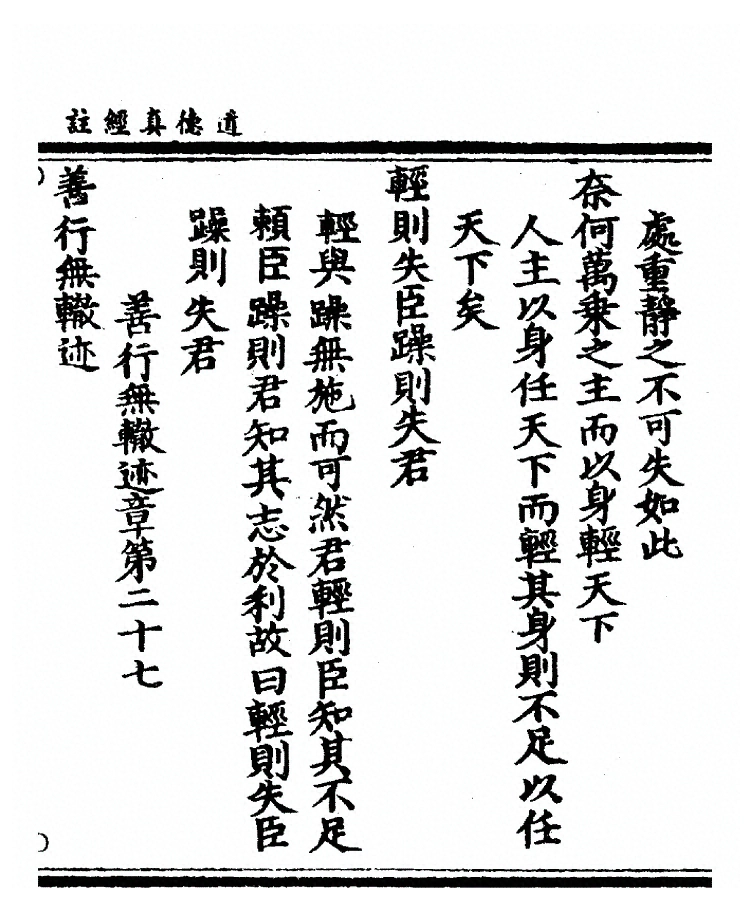 道德真經註
處重靜之不可失如此
奈何萬乗之主而以身輕天下
人主以身任天下而輕其身則不足以任
天下矣
輕則失臣躁則失君
輕與躁無施而可然君輕則臣知其不足
賴臣躁則君知其志於利故曰輕則失臣
躁則失君
善行無轍迹章第二十七
善行無轍迹